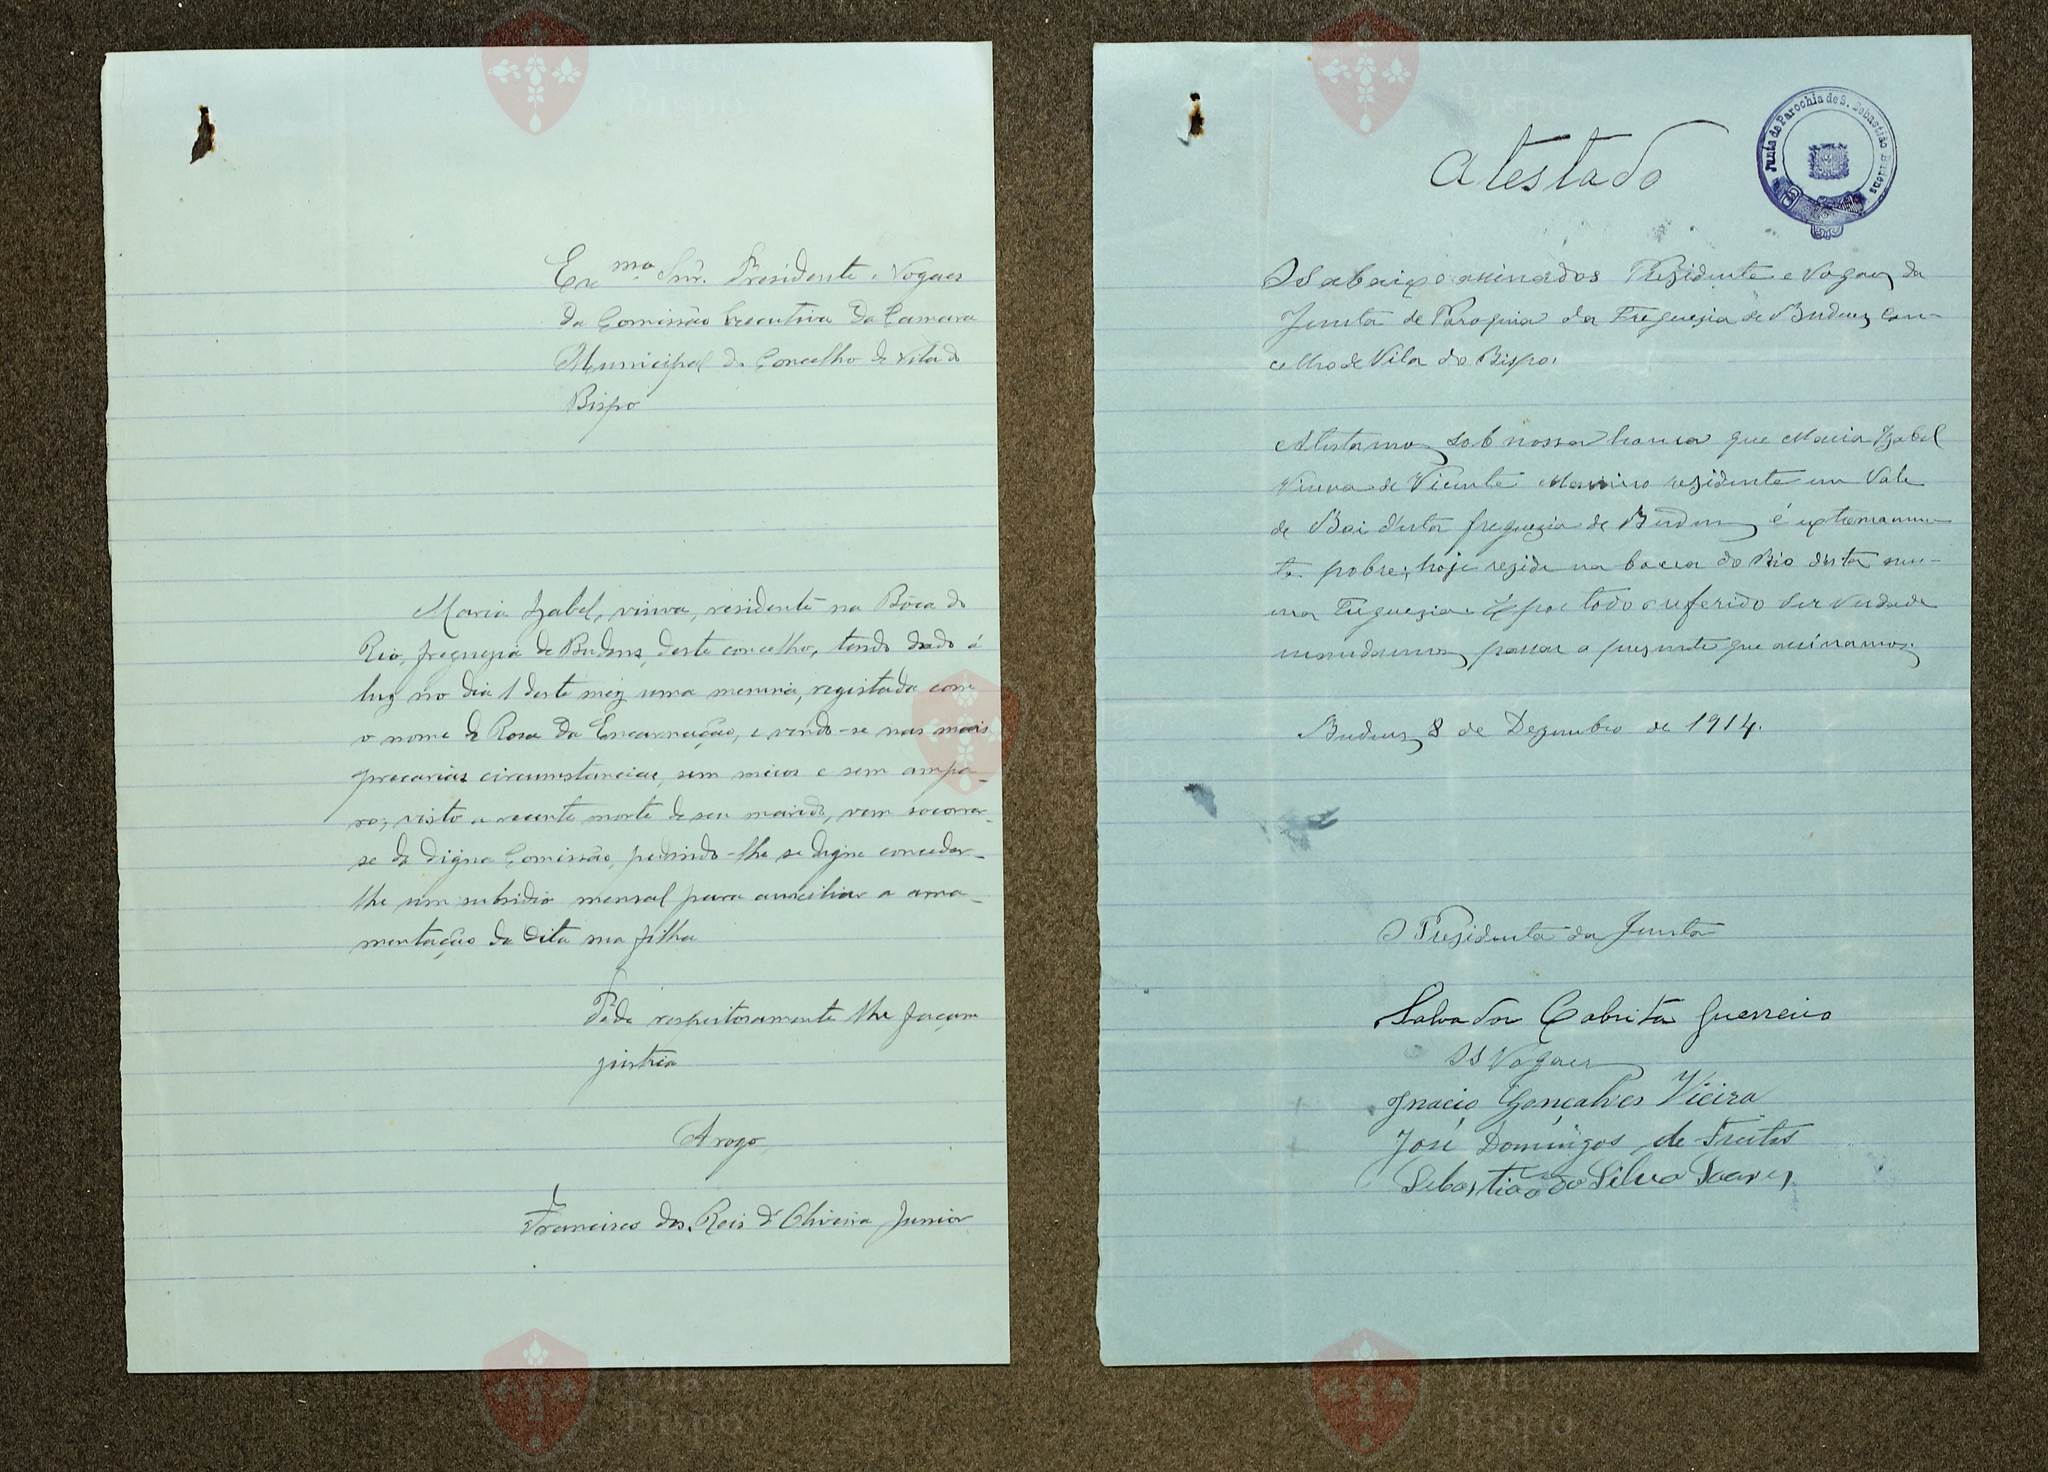 Exma Snr. Presidente e Vogaes
da Comissão Executiva da Camara
Municipal do Concelho de Vila do
Bispo
Maria Izabel, viuva, residente na Bôca do
Rio, freguezia de Budens, deste concelho, tendo dado á
luz no dia 1 deste mez uma menina, registada com
o nome de Rosa da Encarnação, e vendo-se nas mais
precarias circumstancias, sem meios e sem ampa-
ro, visto a recente morte de seu marido, vem socorrer-
se da digna Comissão, pedindo-lhe se digne conceder-
lhe um subsidio mensal para auxiliar a ama-
mentação da dita sua filha
Péde respeitosamente lhe façam
justiça
A rogo
Francisco dos Reis d'Oliveira Junior
Atestado
Junta de Parochia de S. Sebastião Budens
Os abaixo assinados Presidente e Vogaes da
Junta de Paroquia da Freguezia de Budens, con-
celho de Vila do Bispo.
Atestamos sob nossa honra que Maria Izabel
Viuva de Vicente residente em Vale
de Boi desta freguezia de Budens é extremamen-
te pobre, hoje reside na boca do Rio desta mes-
ma Freguezia. E por todo o referido ser verdade
mandamos passar o prezente que assinamos.
Budens 8 de Dezembro de 1914.
O Prezidente da Junta
Salvador Cabrita Guerreiro
Os Vogaes
Ignacio Gonçalves Vieira
José Domingos de Freitas
Sebastião da Silva Soares
Vila do
Bispo